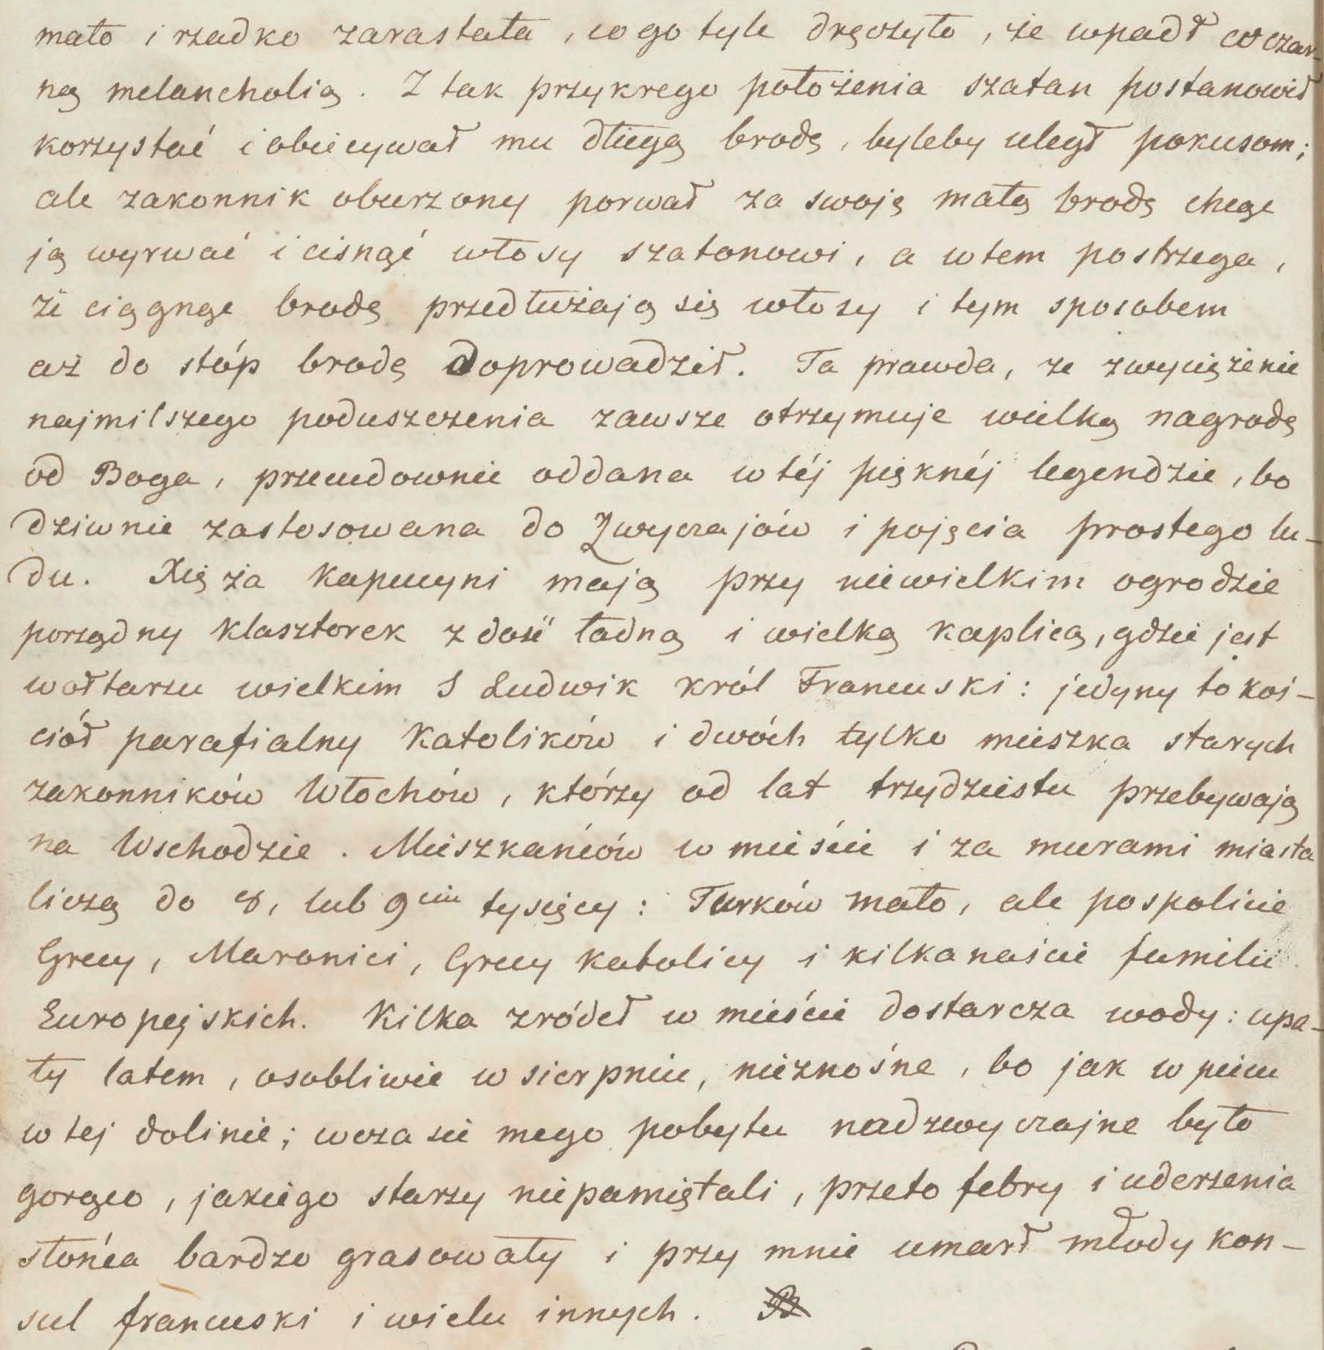 mało i rzadko zarastała, co go tyle dręczyło, że wpadł w czar-
ną melancholią. Z tak przykrego położenia szatan postanowił
korzystać i obiecywał mu długą brodę, byleby uległ pokusom;
ale zakonnik oburzony porwał za swoję małą brodę chcąc
ją wyrwać i cisnąć włosy szatanowi, a wtem postrzega,
że ciągnąc brodę przedłużają się włosy i tym sposobem
aż do stóp brodę doprowadził. Ta prawda, że zwyciężenie
najmilszego poduszczenia zawsze otrzymuje wielką nagrodę
od Boga, przecudownie oddana w téj pięknéj legendzie, bo
dziwnie zastosowana do Zwyczajów i pojęcia prostego lu-
du. Xięża Kapucyni mają przy niewielkim ogrodzie
porządny klasztorek z dość ładną i wielką kaplicą, gdzie jest
w ołtarzu wielkim S Ludwik król Francuski: jedyny to koś-
ciół parafialny Katolików i dwóch tylko mieszka starych
zakonników Włochów, którzy od lat trzydziestu przebywają
na Wschodzie. Mieszkańców w mieście i za murami miasta
liczą do 8, lub 9ciu tysięcy: Turków mało, ale pospolicie
Grecy, Maronici, Grecy Katolicy i kilkanaście familii
Europejskich. Kilka zródeł w mieście dostarcza wody: upa-
ły latem, osobliwie w sierpniu, nieznośne, bo jak w piecu
w tej dolinie; w czasie mego pobytu nadzwyczajne było
gorąco, jakiego starzy niepamiętali, przeto febry i uderzenia
słońca bardzo grasowały i przy mnie umarł młody kon-
sul francuski i wielu innych.